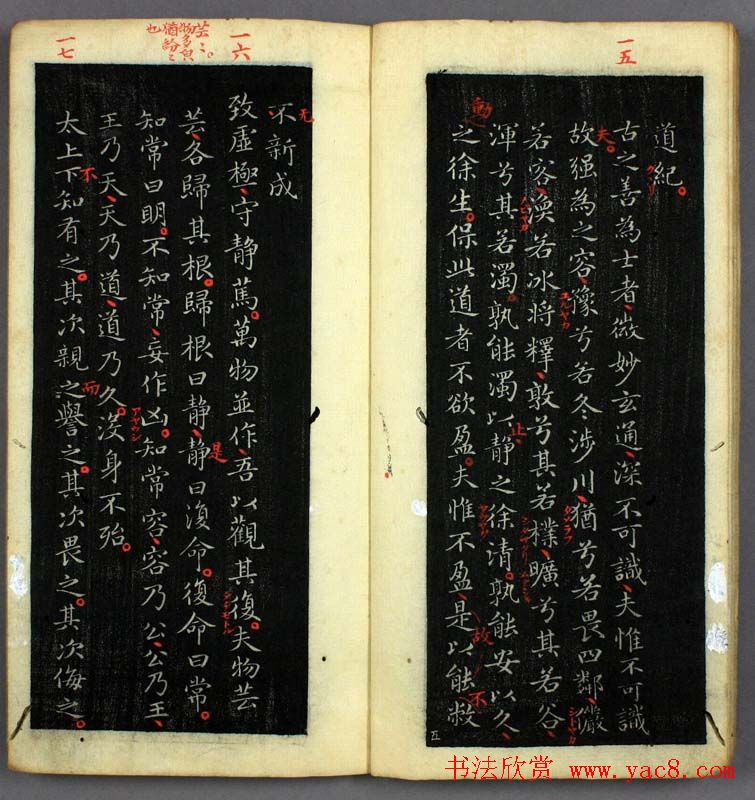 一五
道紀
古之善為士者微妙玄通深不可識夫惟不可識
故强為之容豫兮若冬涉川猶兮若畏四鄰儼
若容渙若冰將釋敦兮其若樸曠兮其若谷
渾兮其若濁孰能濁以靜之徐清孰能安以久
之徐生保此道者不欲盈夫惟不盈是以能敝
夫
動
止
故
不
五
一六
芸〻
物多皃
猶紛〻
也
不新成
无
致虛極守静篤萬物並作吾以觀其復夫物芸
芸各歸其根歸根曰静静曰復命復命曰常
知常曰明不知常妄作凶知常容容乃公公乃王
王乃天天乃道道乃久没身不殆
是
アヤウシ
一七
太上下知有之其次親之譽之其次畏之其次侮之
不
而
书法欣赏 www.yac8.com